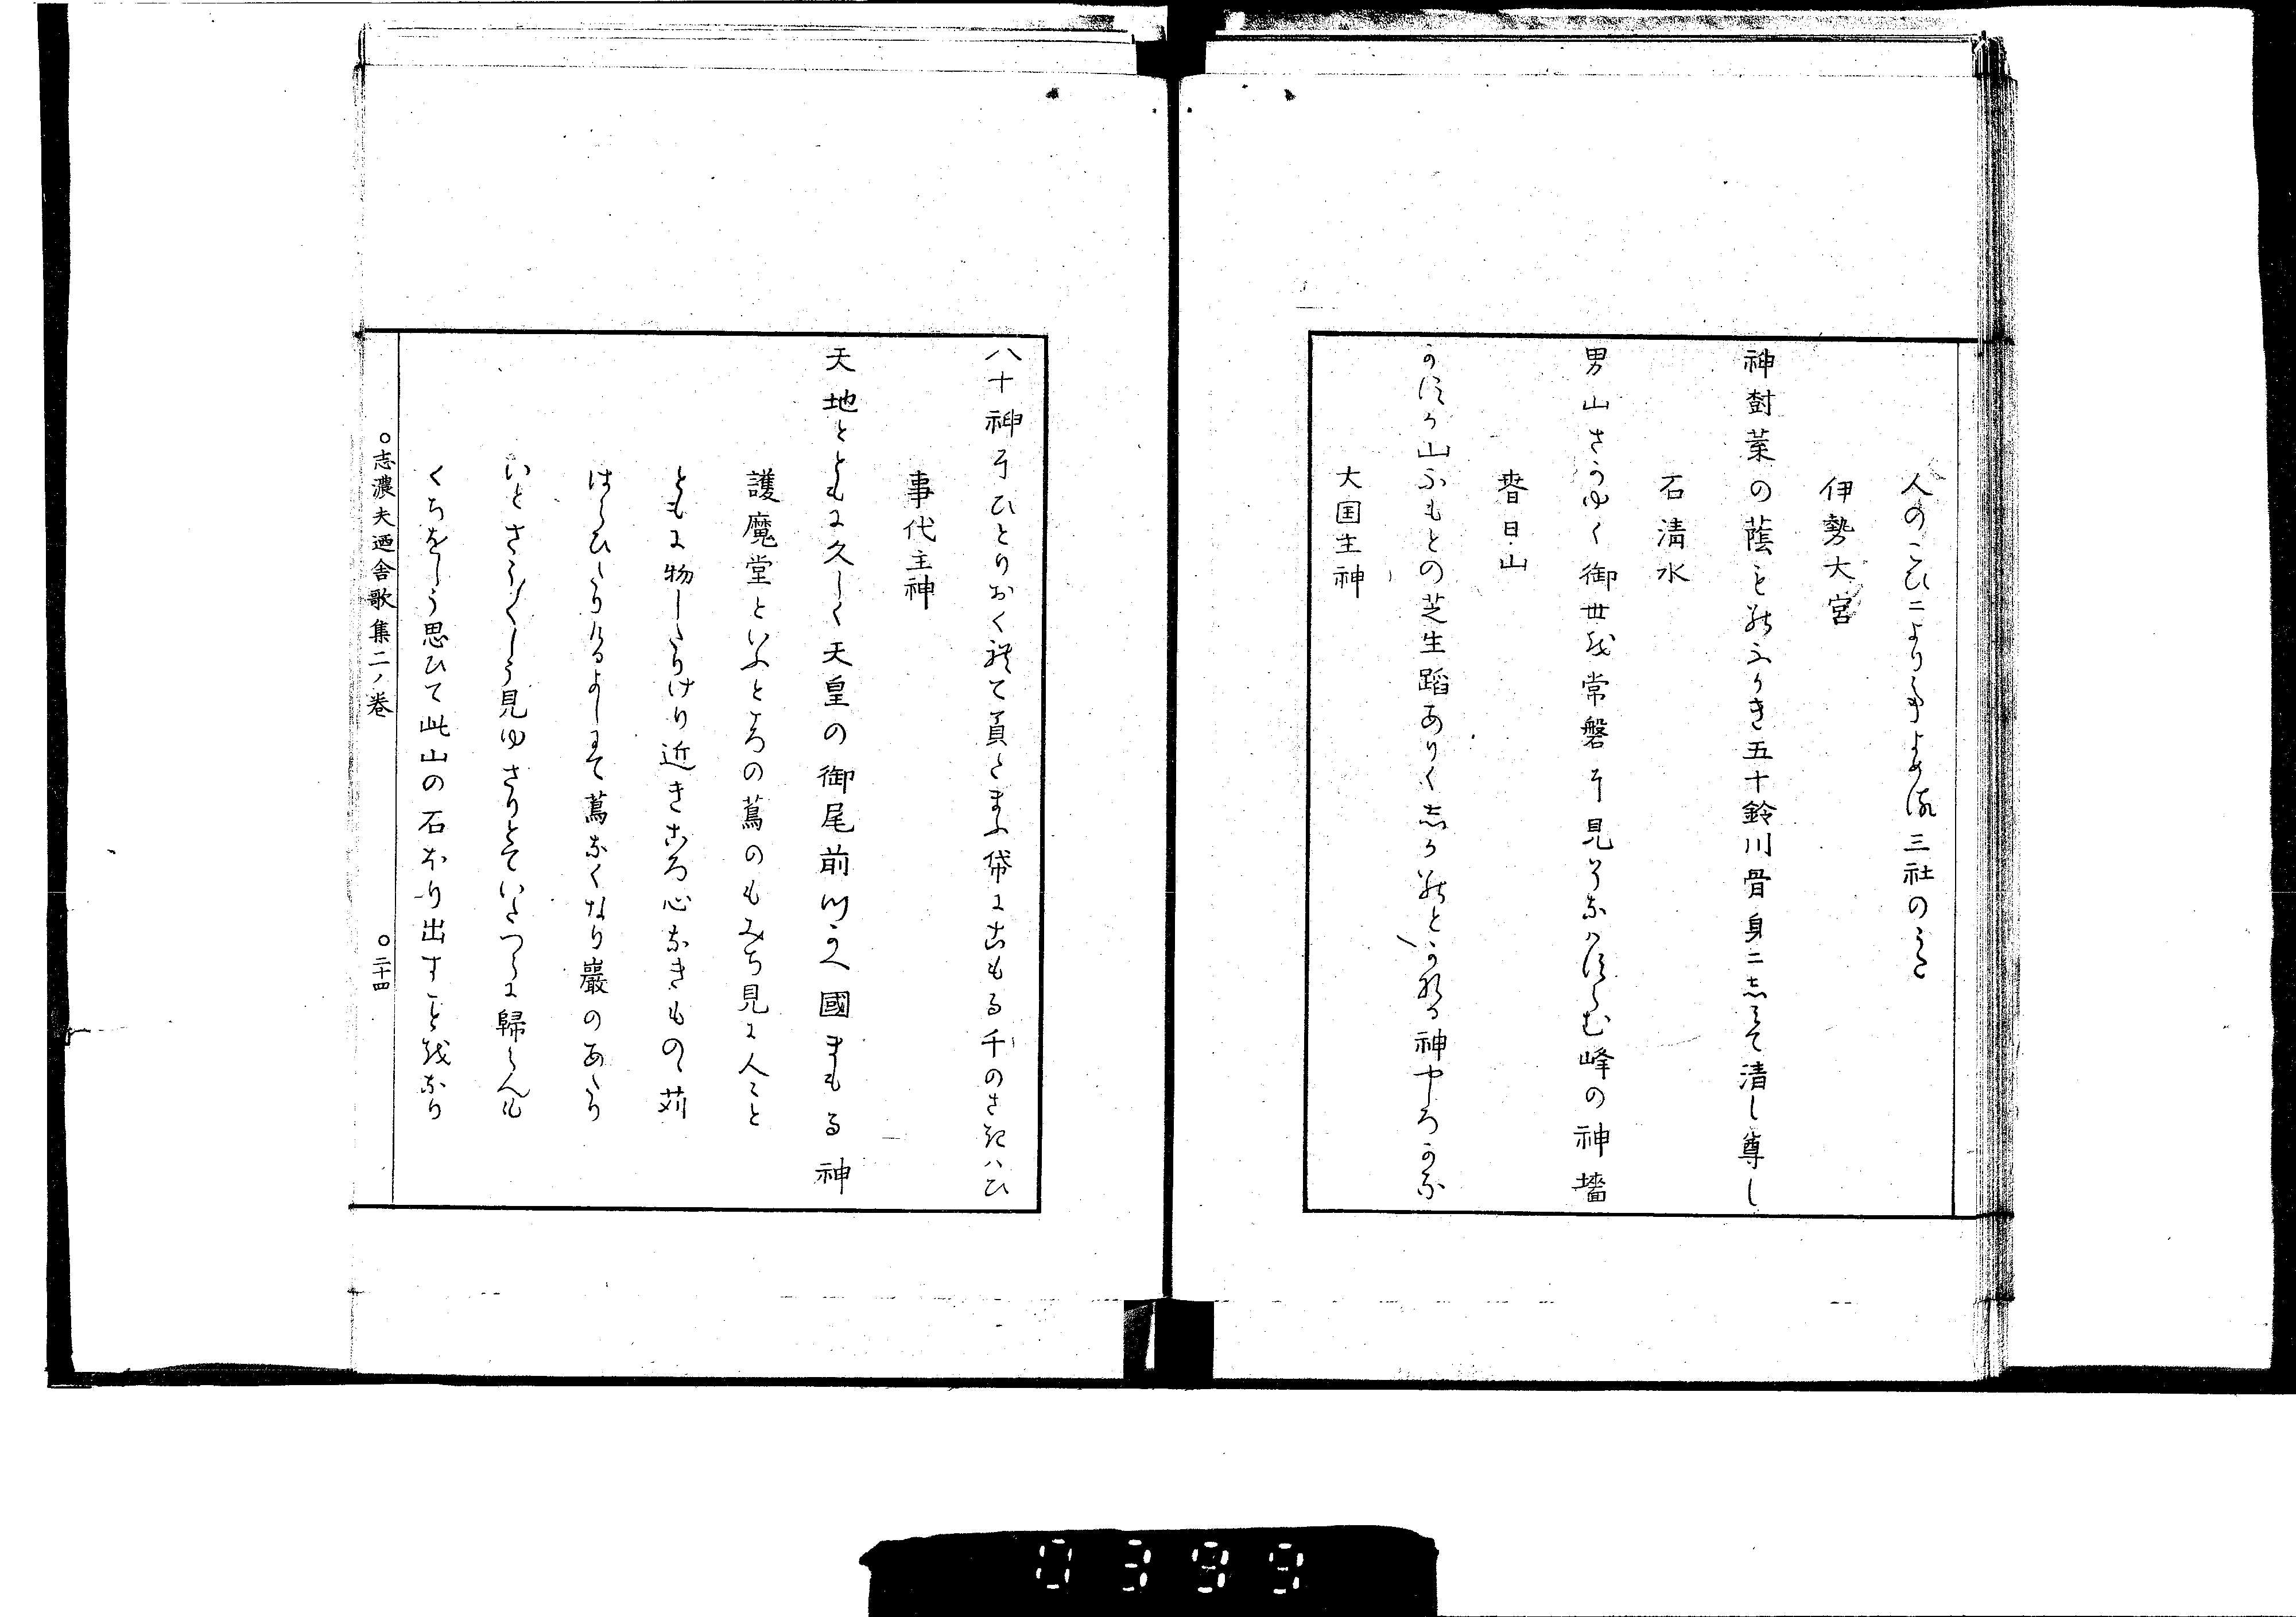 人のこひによりてよめる三社のうた
伊勢大宮
神樹葉の蔭をしぬふかき五十鈴川骨身ニしみて清し尊し
石清水
男山さかゆく御世を常磐に見そなはすらむ峰の神墻
春日山
かすか山ふもとの芝生蹈ありくしかしぬとかめる神やしろかな
大国主神
八十神にひとりおくれて負たまふ帒にこもる千のさきはひ
事代主神
天地とともに久しく天皇の御尾前つかへ國まもる神
護魔堂といふところの蔦のもみち見に人々と
ともに物したりけり近きころ心なきものゝ苅
はらひたりけるよしにて蔦なくなり巖のあたり
いとさう〴〵しう見ゆさりとていたつらに歸らんも
くちをしう思ひて此山の石ほり出すことをなり
○志濃夫廼舎歌集二ノ巻
○二十四
0399